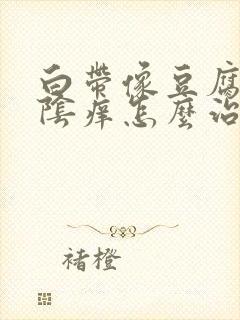 白带像豆腐
陰痒怎麼治
褚橙